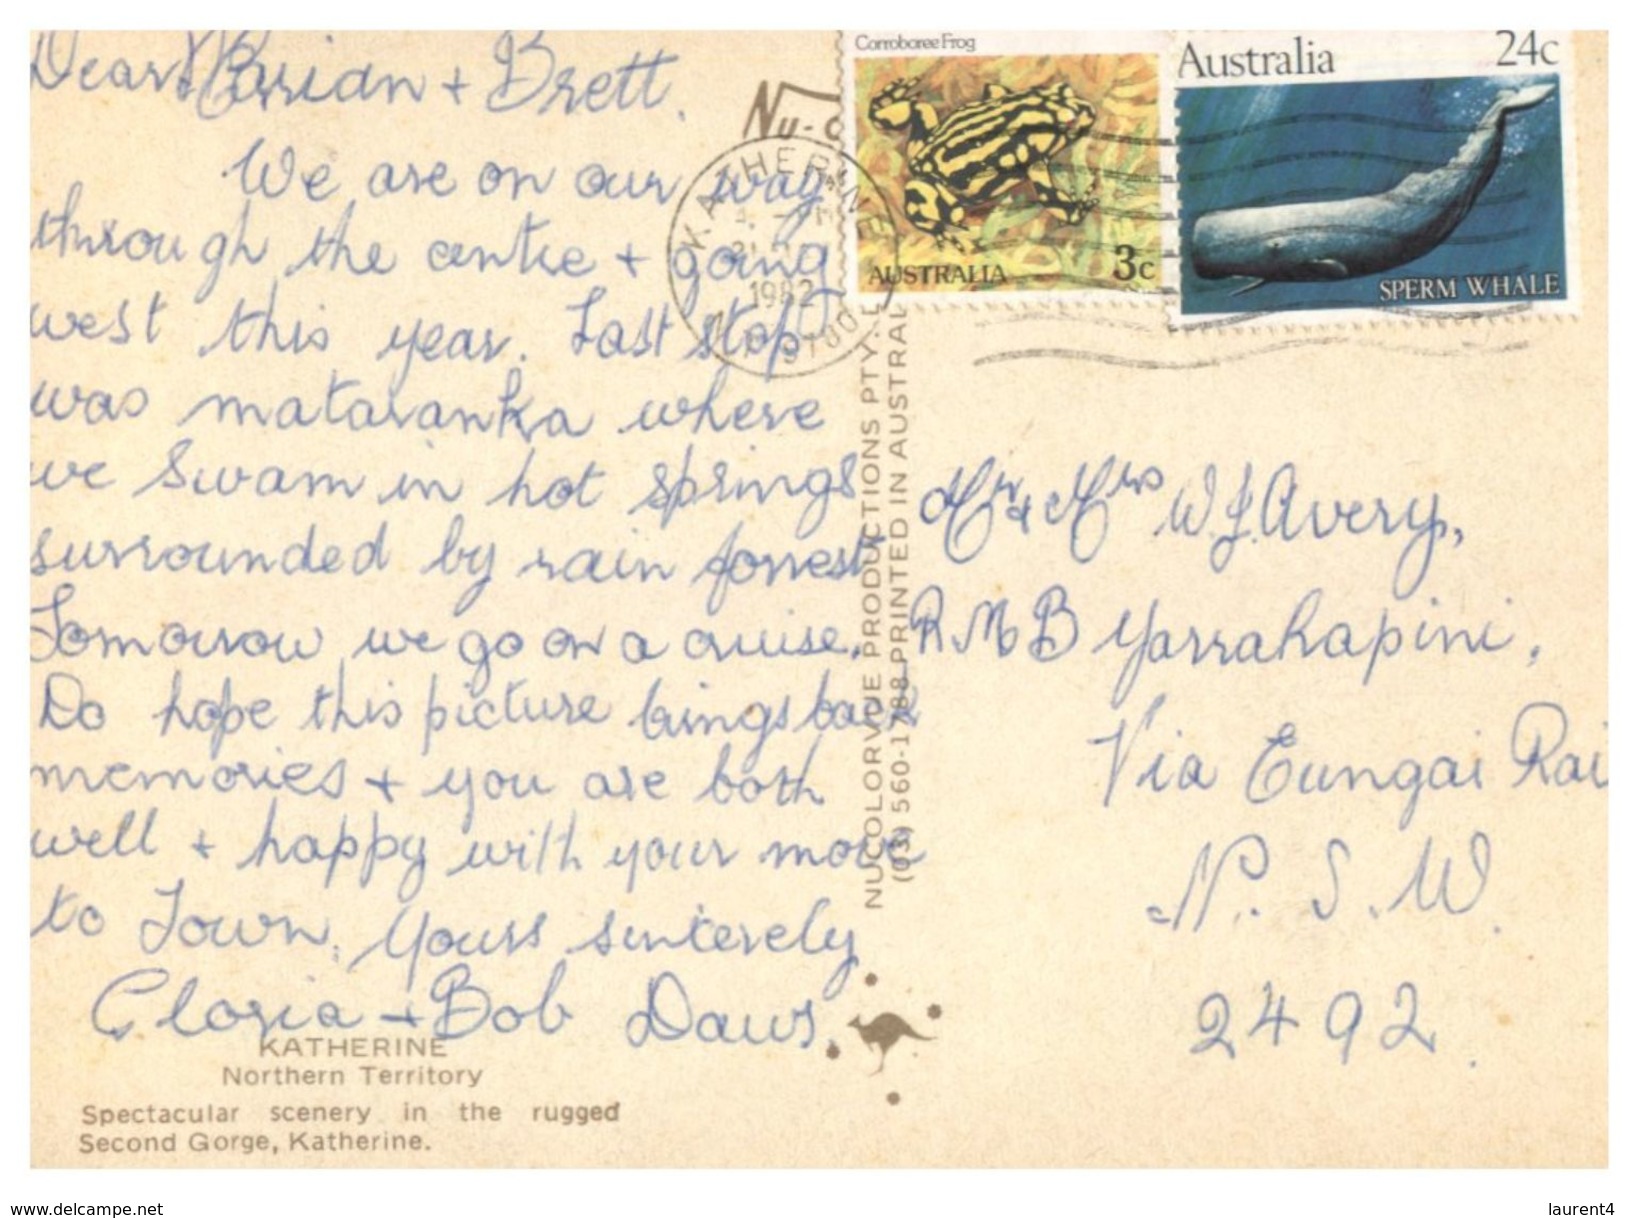 Dear Marian + Brett.
We are on our way
through the centre + going
west this year. Last stop
was mataranka where
we swam in hot springs
surrounded by rain forrest
Tomorrow we go on a cruise.
Do hope this picture brings back
memories + you are both
well + happy with your move
to Town. Yours sincerely
Gloria + Bob Daws.
KATHERINE
Northern Territory
Spectacular scenery in the rugged
Second Gorge, Katherine.
NU-C
KATHERINE
1982
Corroboree Frog
AUSTRALIA 3c
Australia 24c
SPERM WHALE
NUCOLORVUE PRODUCTIONS PTY.
(03) 560-1788 PRINTED IN AUSTRAL
Mr & Mrs W. J. Avery,
R M B Yarrahapini,
Via Eungai Rai
N. S. W.
2492.
www.delcampe.net
laurent4